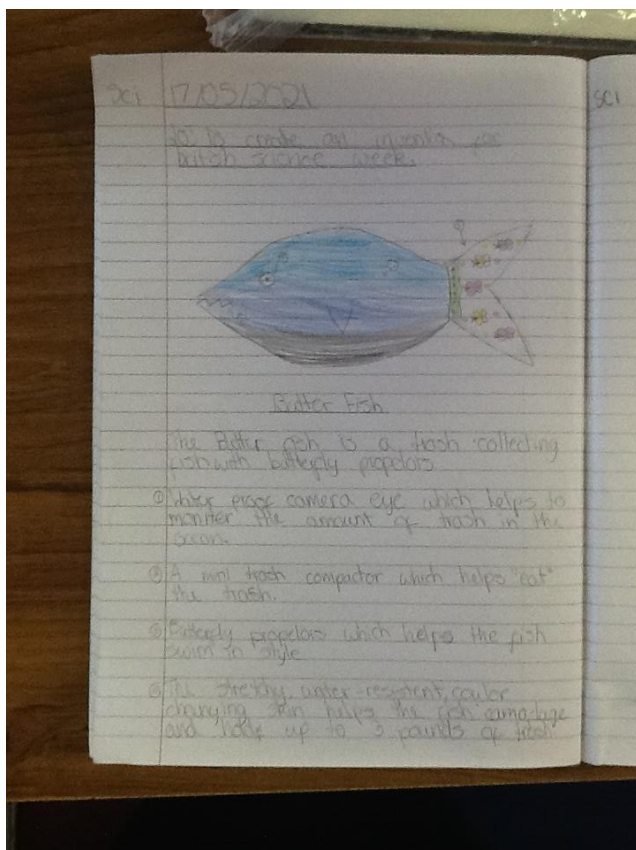 SCI 17/05/2021
to create an invention for
british science week.
Butter Fish
The Butter fish is a trash collecting
fish with butterfly propelors
① Water proof camera eye which helps to
moniter the amount of trash in the
ocean.
② A mini trash compactor which helps "eat"
the trash.
③ Butterfly propelors which helps the fish
swim in style
The stretchy, water-resistent, 
changing skin helps the fish camoflage
and holds up to 5 pounds of trash
SCI